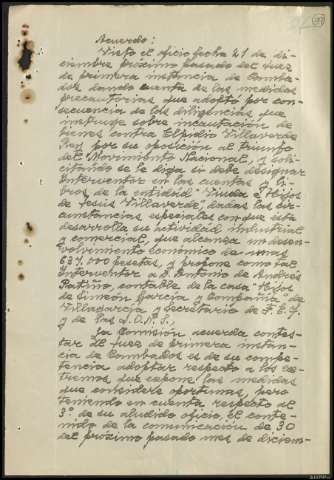 Acuerdo:
Visto el oficio fecha 21 de di-
ciembre próximo pasado del Juez
de primera instancia de Camba-
dos dando cuenta de las medidas
precautorias que adoptó por con-
secuencia de las diligencias que
instruye sobre incautación de
bienes contra Elpidio Villaverde
Rey por su oposición al triunfo
del Movimiento Nacional, y soli-
citando se le diga si debe designar
Interventor en las cuentas y li-
bros de la entidad "Viuda e Hijos
de Jesús Villaverde", dadas las cir-
cunstancias especiales con que ésta
desarrolla su actividad industrial
y comercial, que alcanza un desen-
volvimiento económico de unas
637.000 pesetas, y propone como tal
Interventor a D. Antonio de Andrés
Patiño, contable de la casa "Hijos
de Simeón García y Compañía" de
Villagarcía y Secretario de F.E.T.
y de las J.O.N.S.
La Comisión acuerda contes-
tar al Juez de primera instan-
cia de Cambados es de su compe-
tencia adoptar respecto a los ex-
tremos que expone las medidas
que considere oportunas, pero
teniendo en cuenta respecto al
3º de su aludido oficio, el conte-
nido de la comunicación de 30
del próximo pasado mes de diciem-